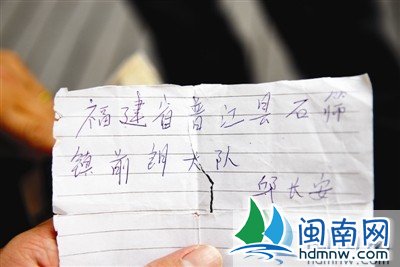 福建省晋江县石筛
镇前朗大队
邱长安
闽南网
hdmnw.com